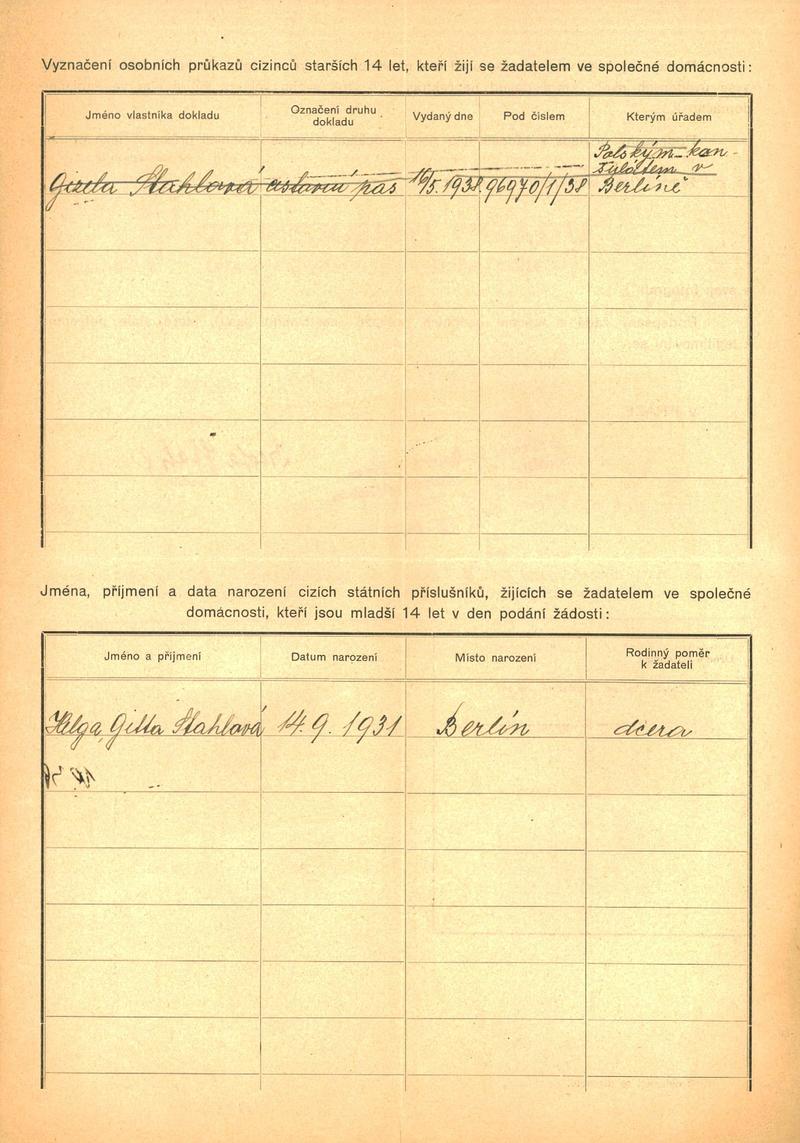 Vyznačení osobních průkazů cizinců starších 14 let, kteří žijí se žadatelem ve společné domácnosti:
Jméno vlastníka dokladu Označení druhu dokladu Vydaný dne Pod číslem Kterým úřadem
Polským kon-
sulátem v
Gizela Stahlová pas 16/5. 1938. 96970/1/38 Berlíně
Jména, příjmení a data narození cizích státních příslušníků, žijících se žadatelem ve společné
domácnosti, kteří jsou mladší 14 let v den podání žádosti:
Jméno a příjmení Datum narození Místo narození Rodinný poměr k žadateli
Helga Gitta Stahlová 14. 9. 1931 Berlín dcera